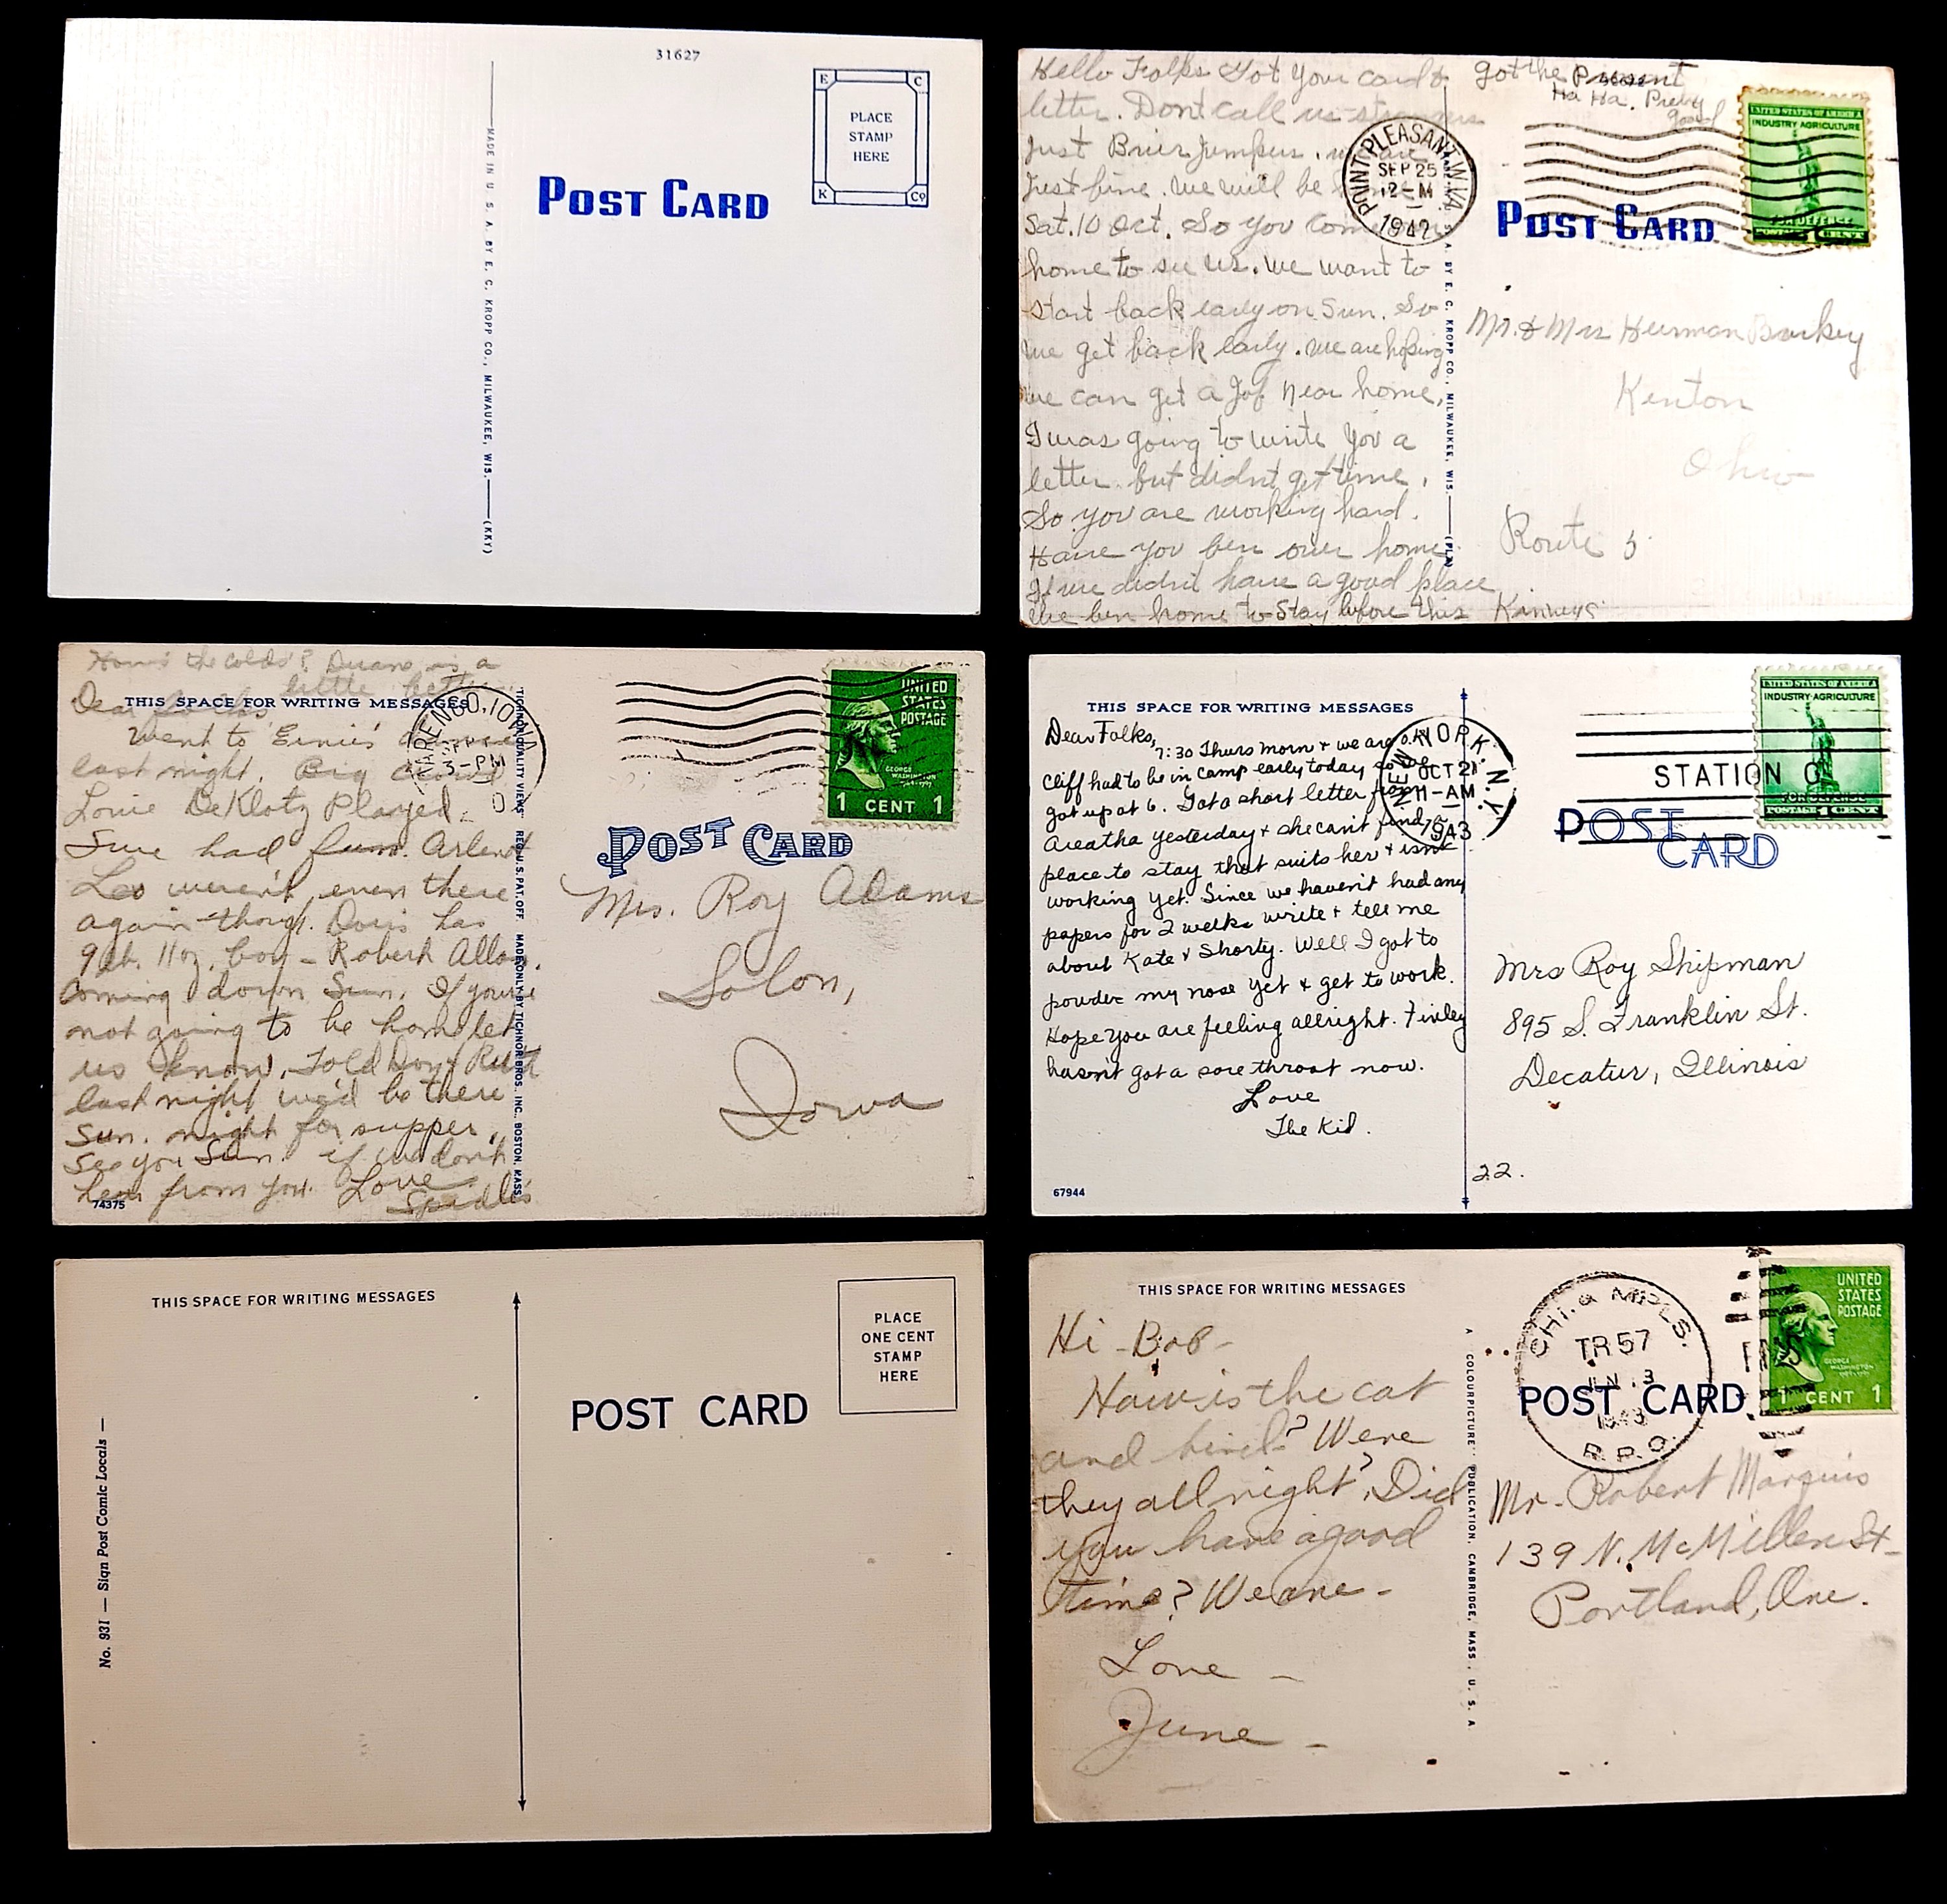 31627
E C
PLACE
STAMP
HERE
K Co
POST CARD
MADE IN U. S. A. BY E. C. KROPP CO., MILWAUKEE, WIS.
(KKY)
Hello Folks Got your card &
letter. Dont call us
Just Brier Jumpers. we are
Just fine. we will be
Sat. 10 Oct. So you come
home to see us. we want to
start back early on Sun. So
we get back early. we are hoping
we can get a Job near home,
I was going to write you a
letter but didnt get time.
So you are working hard.
Have you ben over home
If we didnt have a good place
We ben home to Stay before this Kinneys
got the Present
Ha Ha. Pretty
good
POINT PLEASANT W.VA.
SEP 25
12-M
1942
UNITED STATES OF AMERICA
INDUSTRY AGRICULTURE
FOR DEFENSE
POST CARD
U. S. A. BY E. C. KROPP CO., MILWAUKEE, WIS.
Mr. & Mrs Herman
Kenton
Ohio
Route 3
How's the colds? Duane is a
little better
THIS SPACE FOR WRITING MESSAGES
Dear folks
Went to Ernie's
last night. Big crowd
Louie DeKlotz Played.
Sure had fun.
Leo weren't even there
again though. Doris has
9 lb. 11 oz. boy - Robert Allan.
Coming down Sun. If you're
not going to be home let
us know. Told Don & Ruth
last night we'd be there
Sun. night for supper.
See you Sun. if we don't
hear from you. Love
74375
MARENGO, IOWA
3-PM
"TICHNOR QUALITY VIEWS" REG. U. S. PAT. OFF. MADE ONLY BY TICHNOR BROS. INC., BOSTON, MASS.
UNITED
STATES
POSTAGE
GEORGE
WASHINGTON
1 CENT 1
POST CARD
Mrs. Roy Adams
Solon,
Iowa
THIS SPACE FOR WRITING MESSAGES
Dear Folks,
7:30 Thurs morn & we are o.k.
Cliff had to be in camp early today so we
got up at 6. Got a short letter from
Areatha yesterday & she can't find a
place to stay that suits her & isn't
working yet. Since we haven't had any
papers for 2 weeks write & tell me
about Kate & Shorty. Well I got to
powder my nose yet & get to work.
Hope you are feeling allright. Finley
hasn't got a sore throat now.
Love
The Kid.
67944
22.
NEW YORK, N.Y.
OCT 21
11-AM
1943
STATION
UNITED STATES OF AMERICA
INDUSTRY AGRICULTURE
FOR DEFENSE
POST
CARD
Mrs Roy Shipman
895 S. Franklin St.
Decatur, Illinois
THIS SPACE FOR WRITING MESSAGES
No. 931 — Sign Post Comic Locals —
PLACE
ONE CENT
STAMP
HERE
POST CARD
THIS SPACE FOR WRITING MESSAGES
Hi - Bob -
How is the cat
and bird? Were
they all right? Did
you have a good
time? We are -
Love -
June -
A "COLOURPICTURE" PUBLICATION, CAMBRIDGE, MASS., U. S. A
CHI. & MPLS.
TR 57
JUN 13
1943
R.P.O.
UNITED
STATES
POSTAGE
GEORGE
WASHINGTON
1 CENT 1
POST CARD
Mr. Robert Marquis
139 N. McMillen St-
Portland, Ore.